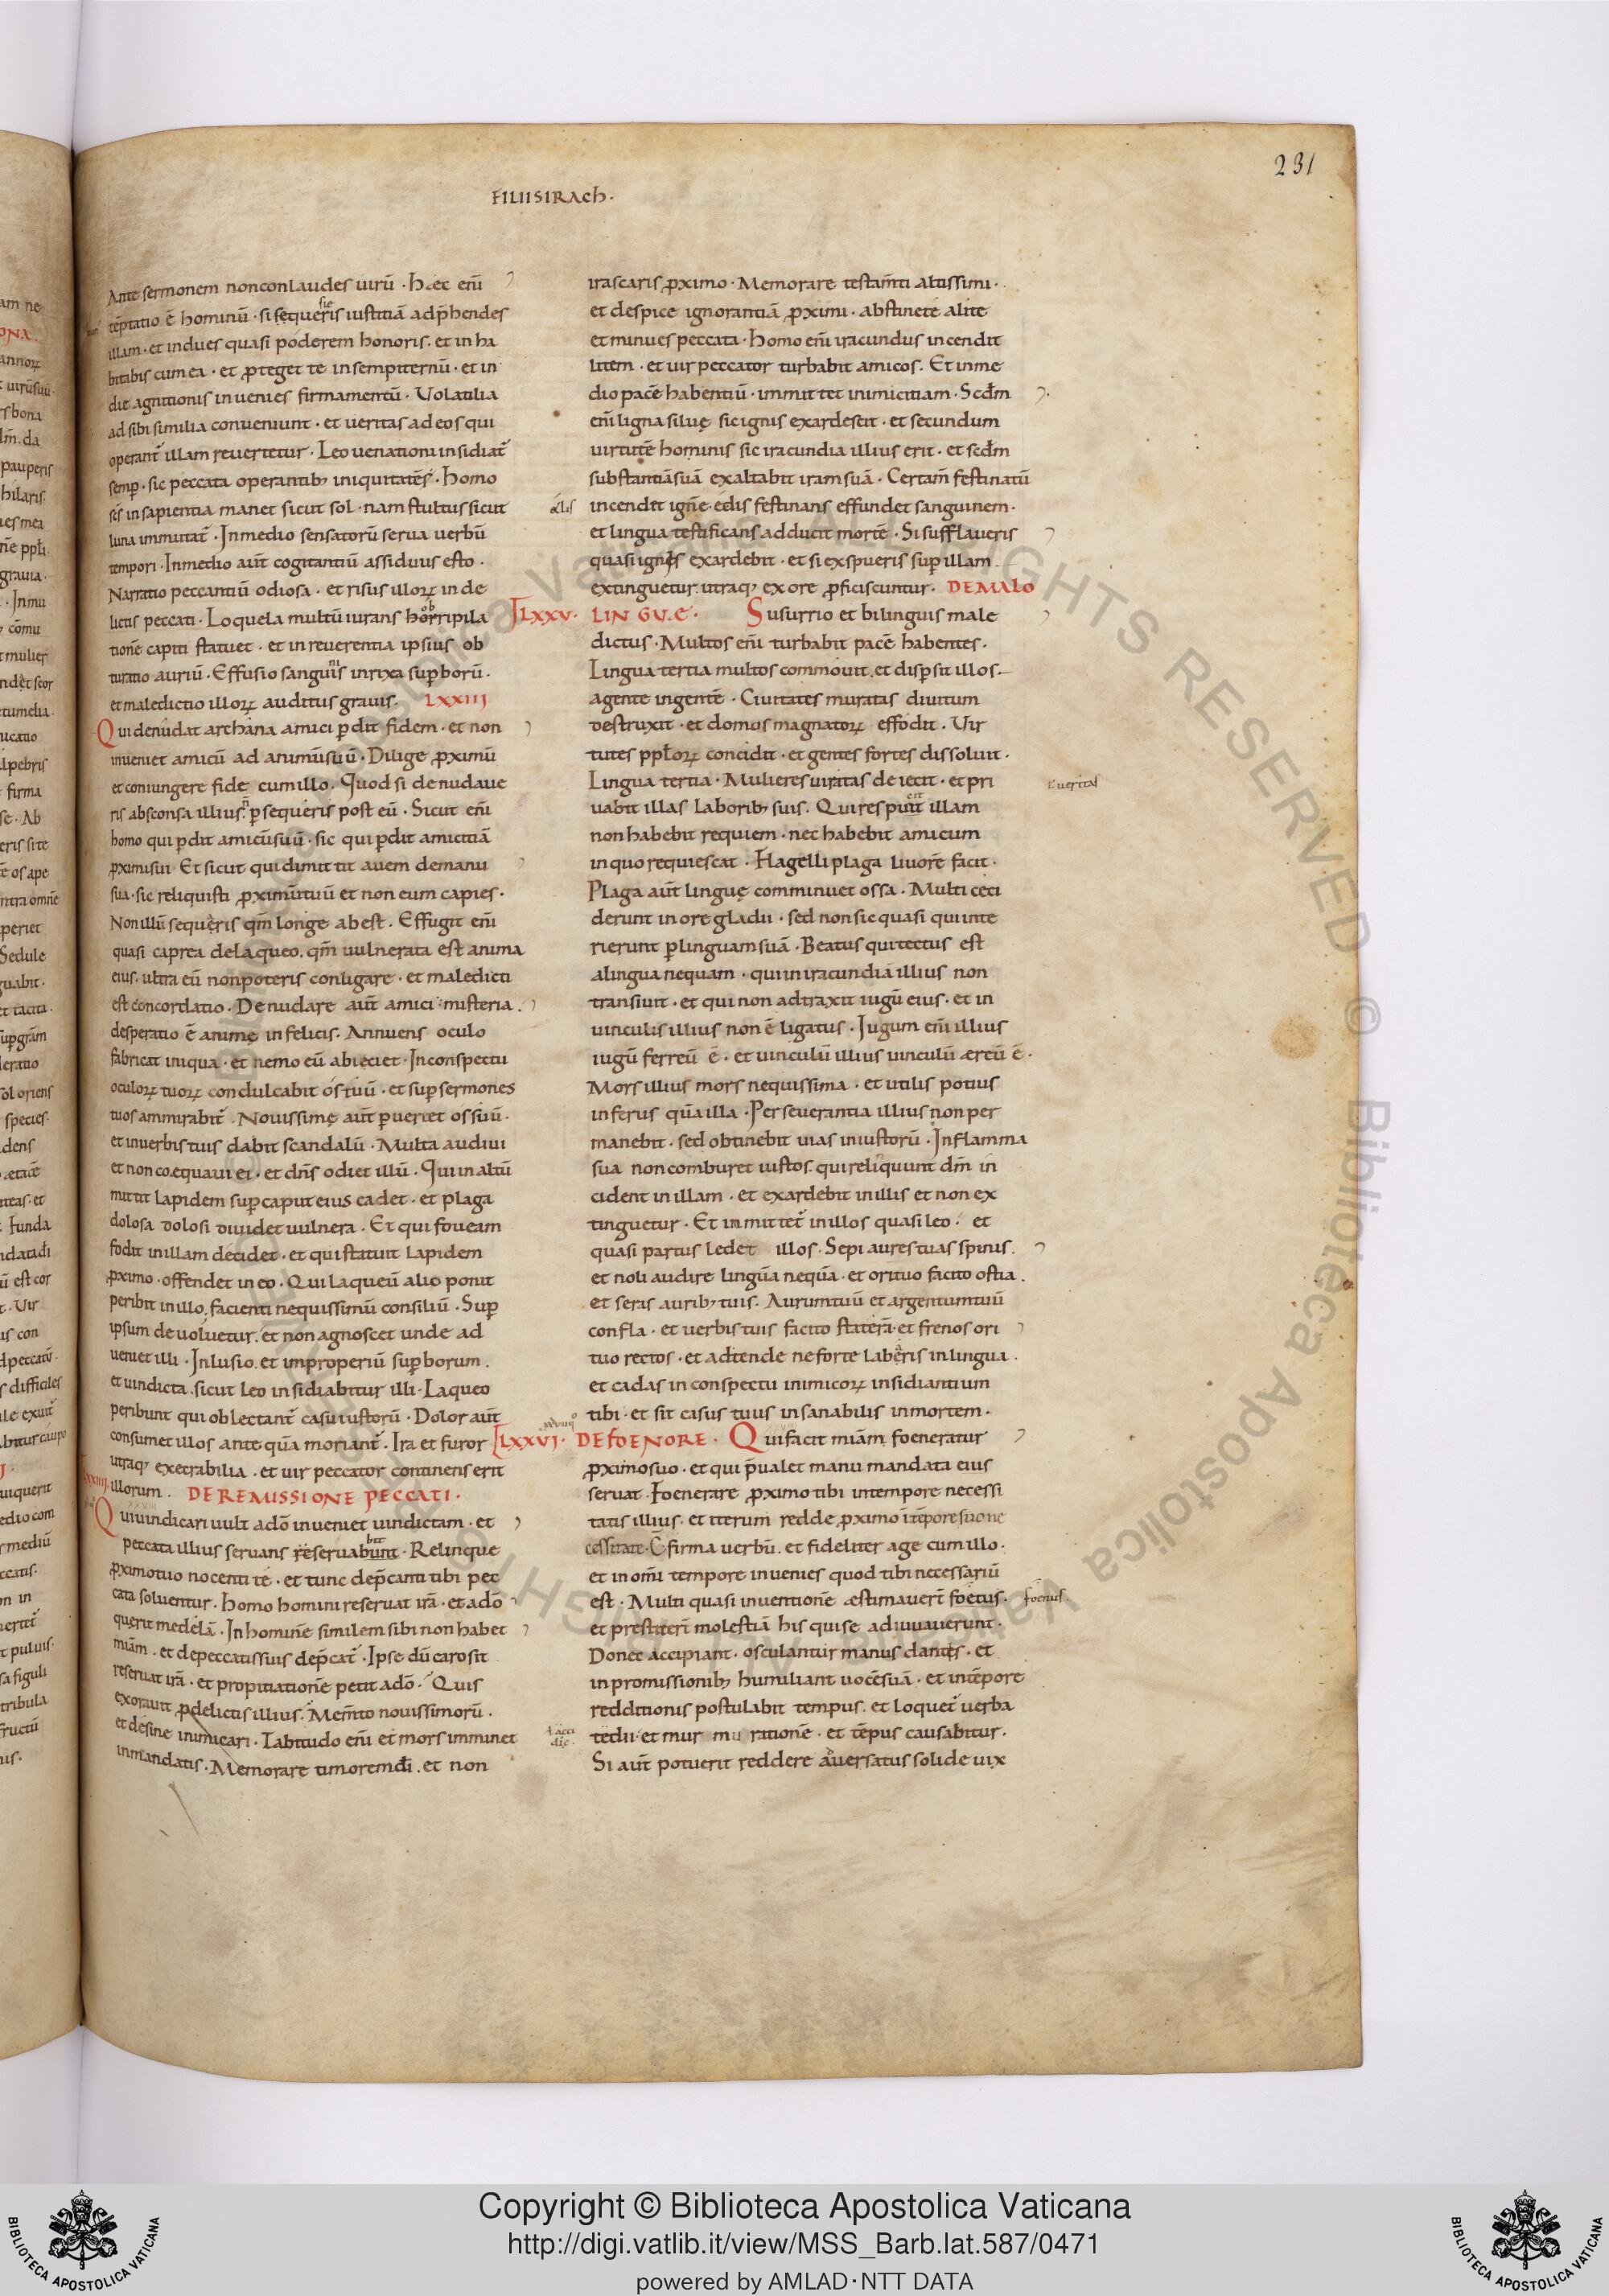 231
FILII SIRACH.
Ante sermonem non conlaudes uirū · Haec enī
tēptatio ē hominū · si sequeris iustitiā adp̄hendes
illam · et indues quasi poderem honoris · et inha
bitabis cum ea · et ꝓteget te in sempiternū · et in
die agnitionis inuenies firmamentū · Volatilia
ad sibi similia conueniunt · et ueritas ad eos qui
operant̄ illam reuertetur · Leo uenationi insidiat̄
semp̄ · sic peccata operantibꝫ iniquitatēs · Homo
sc̄s in sapientia manet sicut sol · nam stultus sicut
luna immutat̄ · In medio sensatorū serua uerbū
tempori · In medio aūt cogitantiū assiduus esto ·
Narratio peccantiū odiosa · et risus illoꝝ in de
lictis peccati · Loquela multū iurans horripila
tionē capiti statuet · et inreuerentia ipsius ob
turatio auriū · Effusio sanguinis in rixa suꝑborū ·
et maledictio illoꝝ auditus grauis · LXXIII
Qui denudat archana amici ꝑdit fidem · et non
inueniet amicū ad animū suū · Dilige ꝓximū
et coniungere fide cum illo · Quod si denudaue
ris absconsa illius ꝑsequeris post eū · Sicut enī
homo qui ꝑdit amicū suū · sic qui ꝑdit amicitiā
ꝓximi sui · Et sicut qui dimittit auem de manu
sua · sic reliquisti ꝓximū tuū et non eum capies ·
Non illū sequeris qm̄ longe abest · Effugit enī
quasi caprea de laqueo · qm̄ uulnerata est anima
eius · ultra eū non poteris conligare · et maledicti
est concordatio · Denudare aūt amici misteria ·
desperatio ē animę infelicis · Annuens oculo
fabricat iniqua · et nemo eū abiciet · In conspectu
oculoꝝ tuoꝝ condulcabit os tuū · et suꝑ sermones
tuos ammirabit̄ · Nouissime aūt ꝑuertet os suū ·
et in uerbis tuis dabit scandalū · Multa audiui
et non coequaui ei · et dn̄s odiet illū · Qui in altū
mittit lapidem suꝑ caput eius cadet · et plaga
dolosa dolosi diuidet uulnera · Et qui foueam
fodit in illam decidet · et qui statuit lapidem
ꝓximo · offendet in eo · Qui laqueū alio ponit
peribit in illo · facienti nequissimū consiliū · Suꝑ
ipsum deuoluetur · et non agnoscet unde ad
ueniet illi · Inlusio et improperiū suꝑborum ·
et uindicta sicut leo insidiabitur illi · Laqueo
peribunt qui oblectant̄ casu iustorū · Dolor aūt
consumet illos ante quā moriant̄ · Ira et furor
utraqꝫ execrabilia · et uir peccator continens erit
LXXIIII illorum · DE REMISSIONE PECCATI ·
Qui uindicari uult a dō inueniet uindictam · et
peccata illius seruans reseruabunt · Relinque
ꝓximo tuo nocenti te · et tunc dep̄canti tibi pec
cata soluentur · Homo homini reseruat irā · et a dō
querit medelā · In hominē similem sibi non habet
miā̄m · et de peccatis suis dep̄cat̄ · Ipse dū caro sit
reseruat irā · et propitiationē petit a dō · Quis
exorauit ꝓ delictis illius · Mem̄to nouissimorū ·
et desine inimicari · Tabitudo enī et mors imminet
in mandatis · Memorare timorem dī · et non
irascaris ꝓximo · Memorare testam̄ti altissimi ·
et despice ignorantiā ꝓximi · abstinete a lite
et minues peccata · Homo enī iracundus incendit
litem · et uir peccator turbabit amicos · Et in me
dio pacē habentiū · immittet inimicitiam · Scdm̄
enī ligna siluę sic ignis exardescit · et secundum
uirtutē hominis sic iracundia illius erit · et scdm̄
substantiā suā exaltabit iram suā · Certam̄ festinatū
incendit ignē · edis festinans effundet sanguinem ·
et lingua testificans adducit mortē · Si sufflaueris
quasi ignis exardebit · et si exspueris suꝑ illam
extinguetur · utraqꝫ ex ore ꝓficiscuntur · DE MALO
LXXV · LINGVAE · Susurrio et bilinguis male
dictus · Multos enī turbabit pacē habentes ·
Lingua tertia multos commouit · et disꝑsit illos
a gente in gentē · Ciuitates muratas diuitum
destruxit · et domos magnatoꝝ effodit · Vir
tutes pp̄loꝝ concidit · et gentes fortes dissoluit ·
Lingua tertia · Mulieres uiratas deiecit · et pri
uabit illas laboribꝫ suis · Qui respuit illam
non habebit requiem · nec habebit amicum
in quo requiescat · Flagelli plaga liuorē facit ·
Plaga aūt linguę comminuet ossa · Multi ceci
derunt in ore gladii · sed non sic quasi qui inte
rierunt ꝑ linguam suā · Beatus qui tectus est
a lingua nequam · qui in iracundia illius non
transiuit · et qui non adtraxit iugū eius · et in
uinculis illius non ē ligatus · Iugum enī illius
iugū ferreū ē · et uinculū illius uinculū aereū ē ·
Mors illius mors nequissima · et utilis potius
inferus quā illa · Perseuerantia illius non per
manebit · sed obtinebit uias iniustorū · In flamma
sua non comburet iustos · qui reliquunt dm̄ in
cident in illam · et exardebit in illis et non ex
tinguetur · Et inmittet̄ in illos quasi leo · et
quasi partus ledet illos · Sepi aures tuas spinis ·
et noli audire linguā nequā · et ori tuo facito ostia ·
et seras auribꝫ tuis · Aurum tuū et argentum tuū
confla · et uerbis tuis facito staterā · et frenos ori
tuo rectos · et adtende ne forte laberis in lingua ·
et cadas in conspectu inimicoꝝ insidiantium
tibi · et sit casus tuus insanabilis in mortem ·
LXXVI · DE FOENORE · Qui facit miā̄m foeneratur
ꝓximo suo · et qui p̄ualet manu mandata eius
seruat · Foenerare ꝓximo tibi in tempore necessi
tatis illius · et iterum redde ꝓximo ī tēpore suo ne
cessitate · Cf̄irma uerbū · et fideliter age cum illo ·
et in om̄i tempore inuenies quod tibi necessariū
est · Multi quasi inuentionē aestimauerī foetus · foenus ·
et prestiterī molestiā his qui se adiuuauerunt ·
Donec accipiant · osculantur manus dantes · et
in promissionibꝫ humiliant uocē suā · et in tēpore
redditionis postulabit tempus · et loquet̄ uerba
tedii · et mur mu rationē · et tēpus causabitur ·
Si aūt potuerit reddere aduersatus solide uix
Copyright © Biblioteca Apostolica Vaticana
http://digi.vatlib.it/view/MSS_Barb.lat.587/0471
powered by AMLAD·NTT DATA